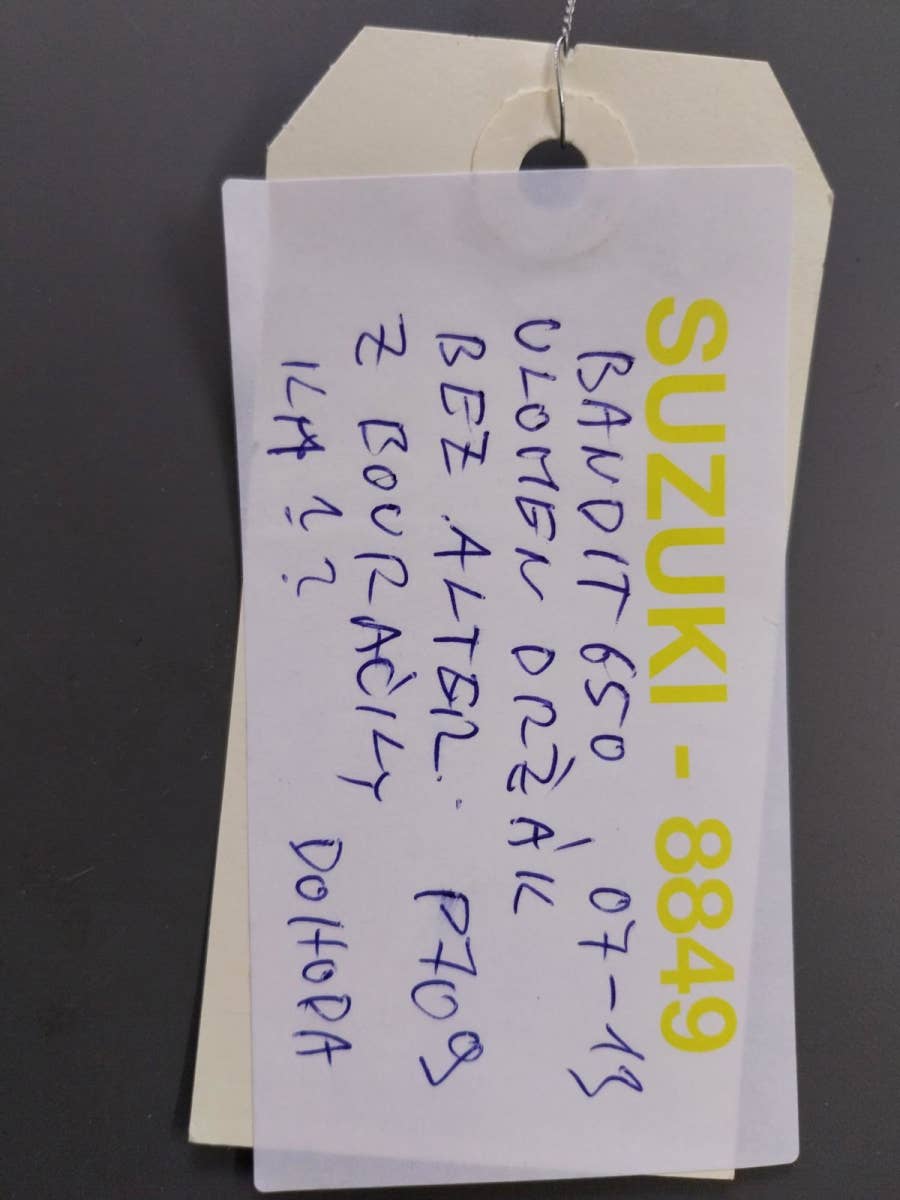 SUZUKI - 8849
BANDIT 650 07-13
ULOMEN DRŽÁK
BEZ ALTER. P709
Z BOURAČILY
KM ? ? DOHODA